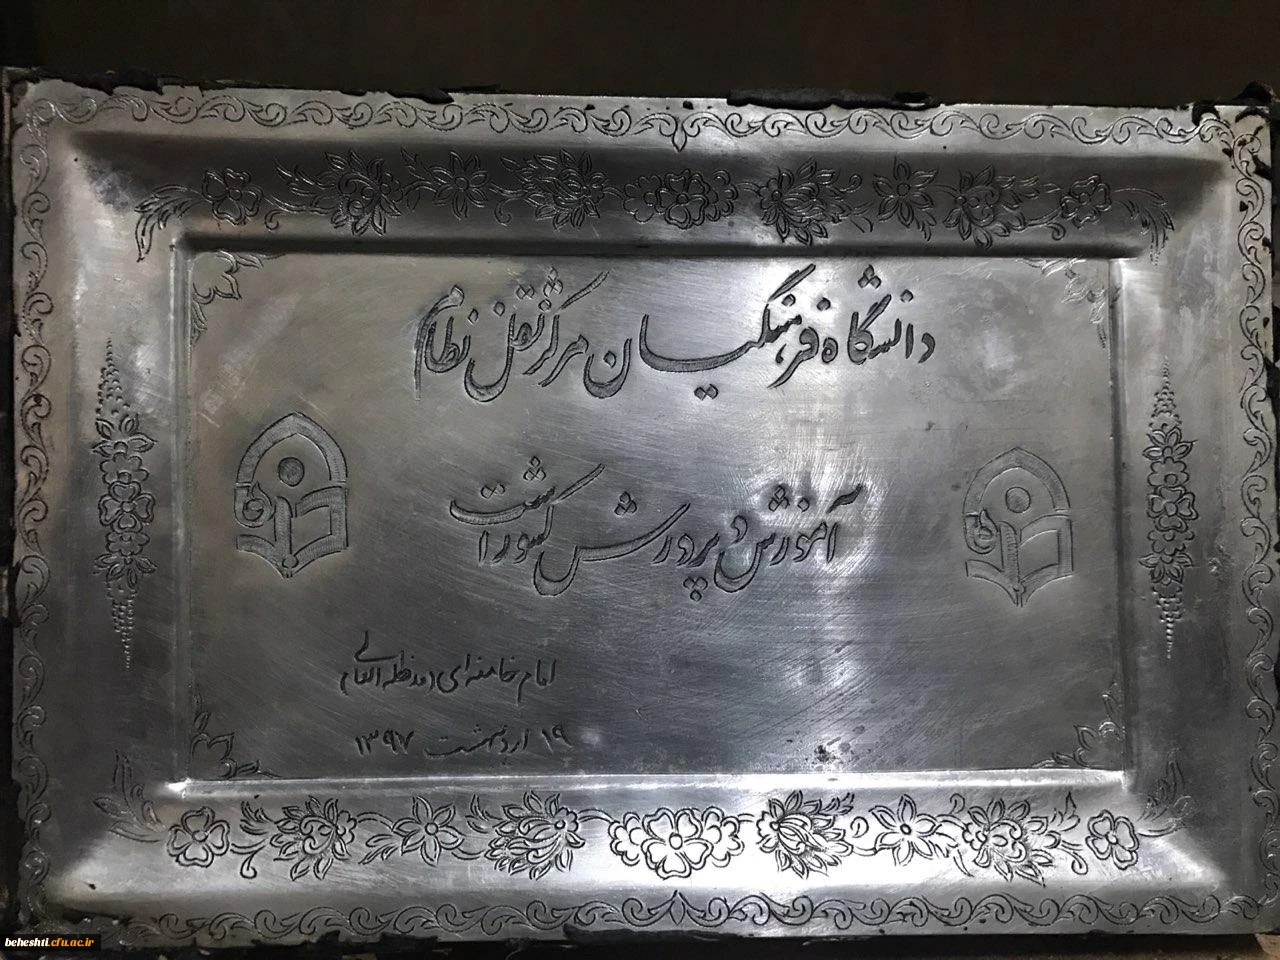 دانشگاه فرهنگیان مرکز ثقل نظام
آموزش و پرورش کشور است
امام خامنه ای (مدظله العالی
۱۹ اردیبهشت ۱۳۹۷
beheshti.cfu.ac.ir